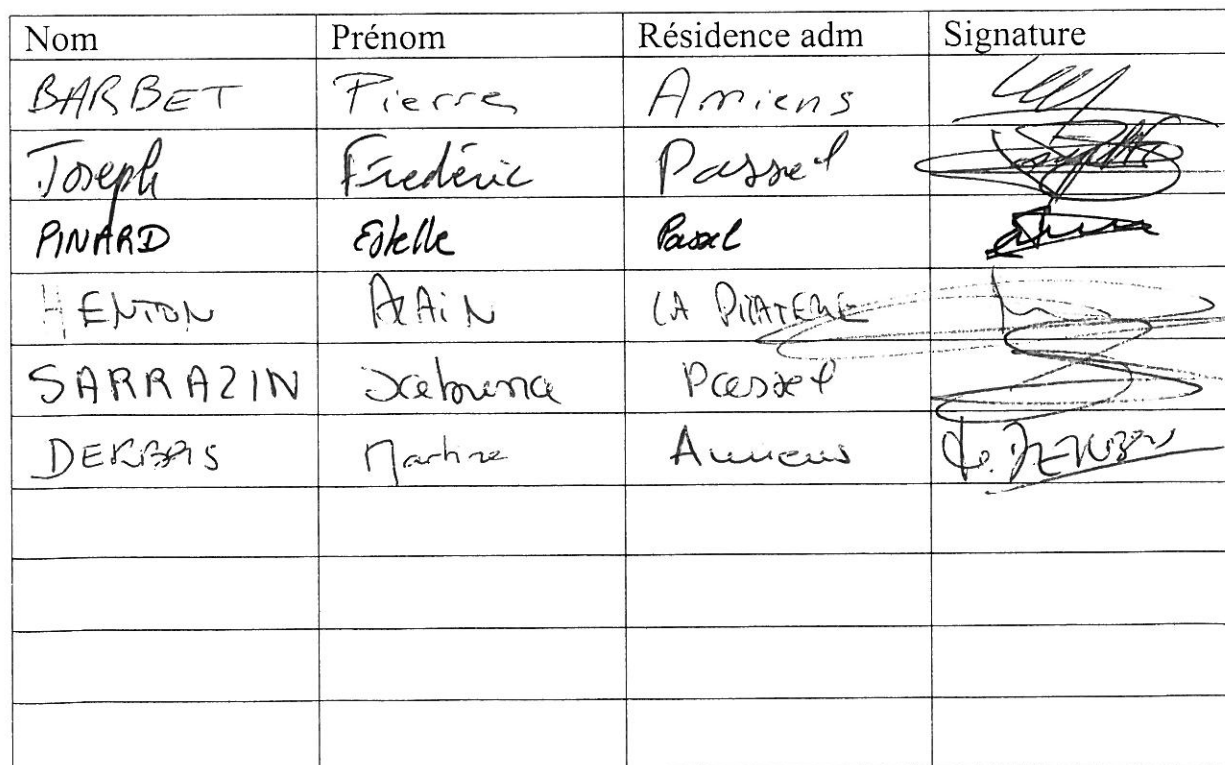 Nom Prénom Résidence adm Signature
BARBET Pierre Amiens
Joseph Frédéric Passel
PINARD Estelle Passel
HENTON ALAIN LA
SARRAZIN Passel
Martine Amiens